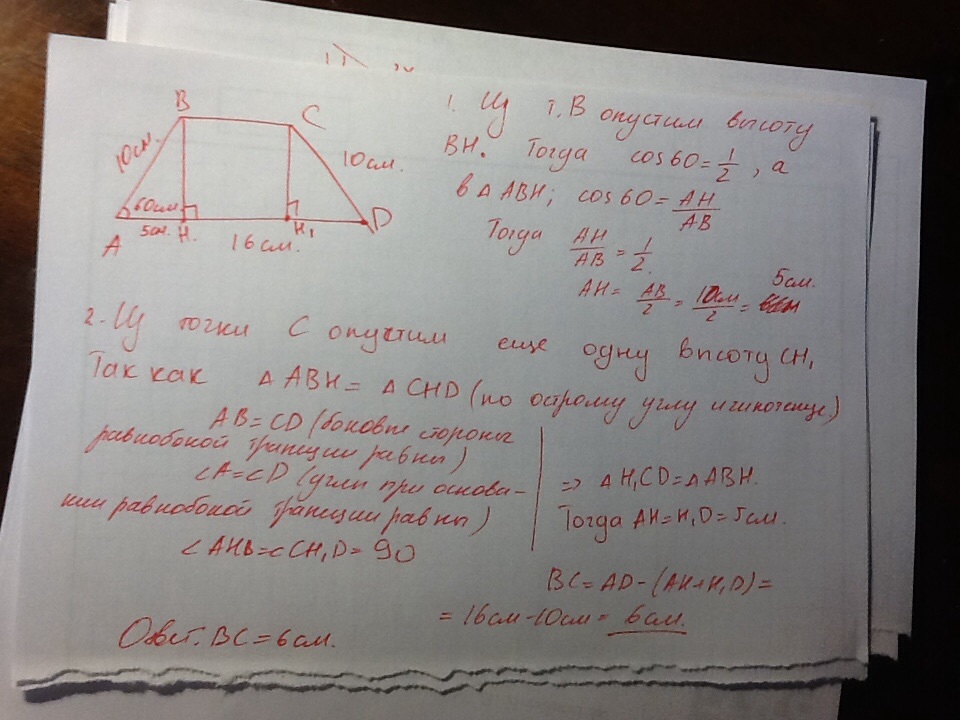 B
C
10см.
10см.
60см
5см.
A
H.
16см.
H₁
D
1. Из т. В опустим высоту
BH. Тогда cos60=1/2, а
в △ ABH; cos60=AH/AB
Тогда AH/AB=1/2.
AH= AB/2=10см/2= 5см.
2. Из точки С опустим еще одну высоту CH₁
Так как △ ABH= △ CHD (по острому углу и гипотенузе)
AB=CD (боковые стороны
равнобокой трапеции равны)
∠A=∠D (углы при основа-
нии равнобокой трапеции равны)
∠AHB=∠CH₁D=90
=> △H₁CD=△ABH.
Тогда AH=H₁D=5см.
BC=AD-(AH+H₁D)=
=16см-10см=6см.
Ответ: BC=6см.